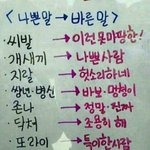 <나쁜말 → 바른말>
·씨발 → 이런못마땅한!
·개새끼 → 나쁜사람
·지랄 → 헛소리하네
·쌍년·병신 → 바보·멍청이
·존나 → 정말·진짜
·닥쳐 → 조용히 해
·또라이 → 특이한사람